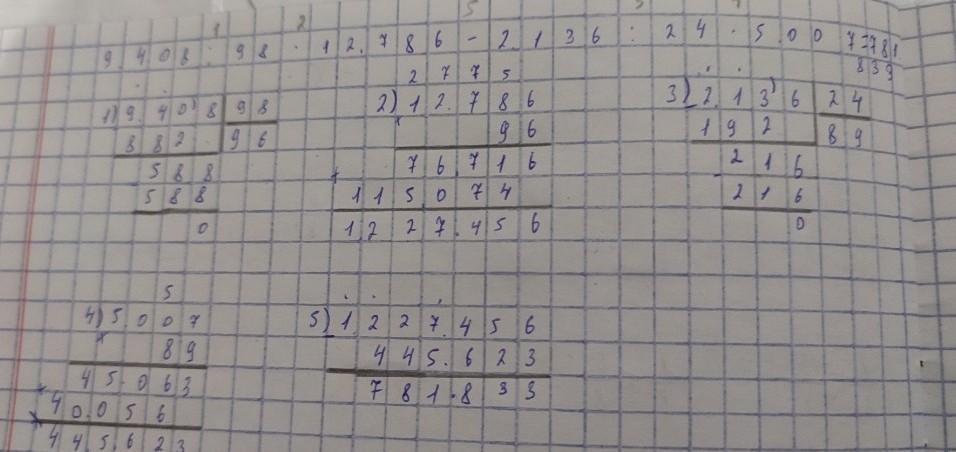 1 2 5 3 4
9.408 : 98 · 12.786 - 2.136 : 24 · 5.007 = 781.
833
1) 9.408 98
882 96
588
588
0
2775
2) 12.786
× 96
76716
+ 115.074
1.227.456
3) 2.136 24
192 89
216
216
0
5
4) 5.007
× 89
45.063
+ 40.056
445.623
5) 1.227.456
445.623
781.833